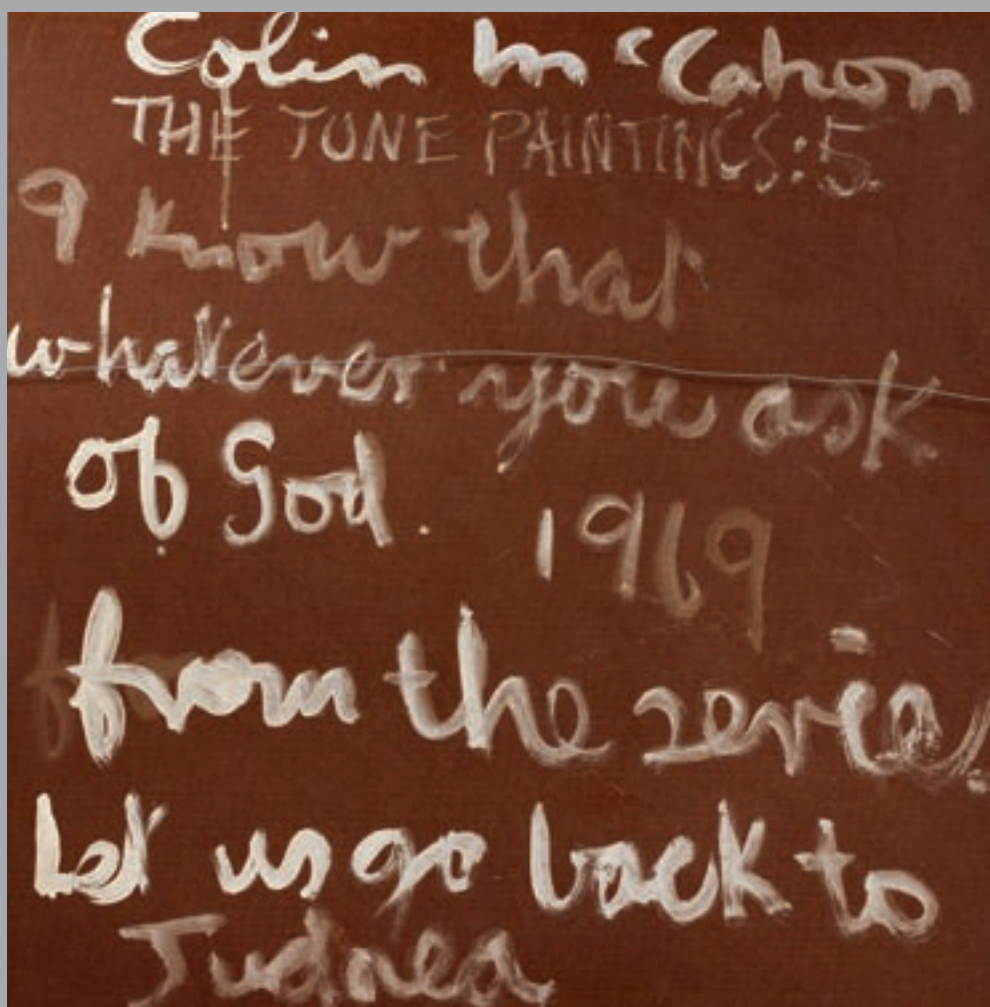 Colin McCahon
THE JUNE PAINTINGS: 5.
I know that
whatever you ask
of God. 1969
from the series.
Let us go back to
Judaea